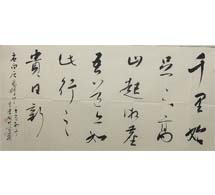 千里始
足下高
山起微塵
吾道亦如
此行之
貴日新